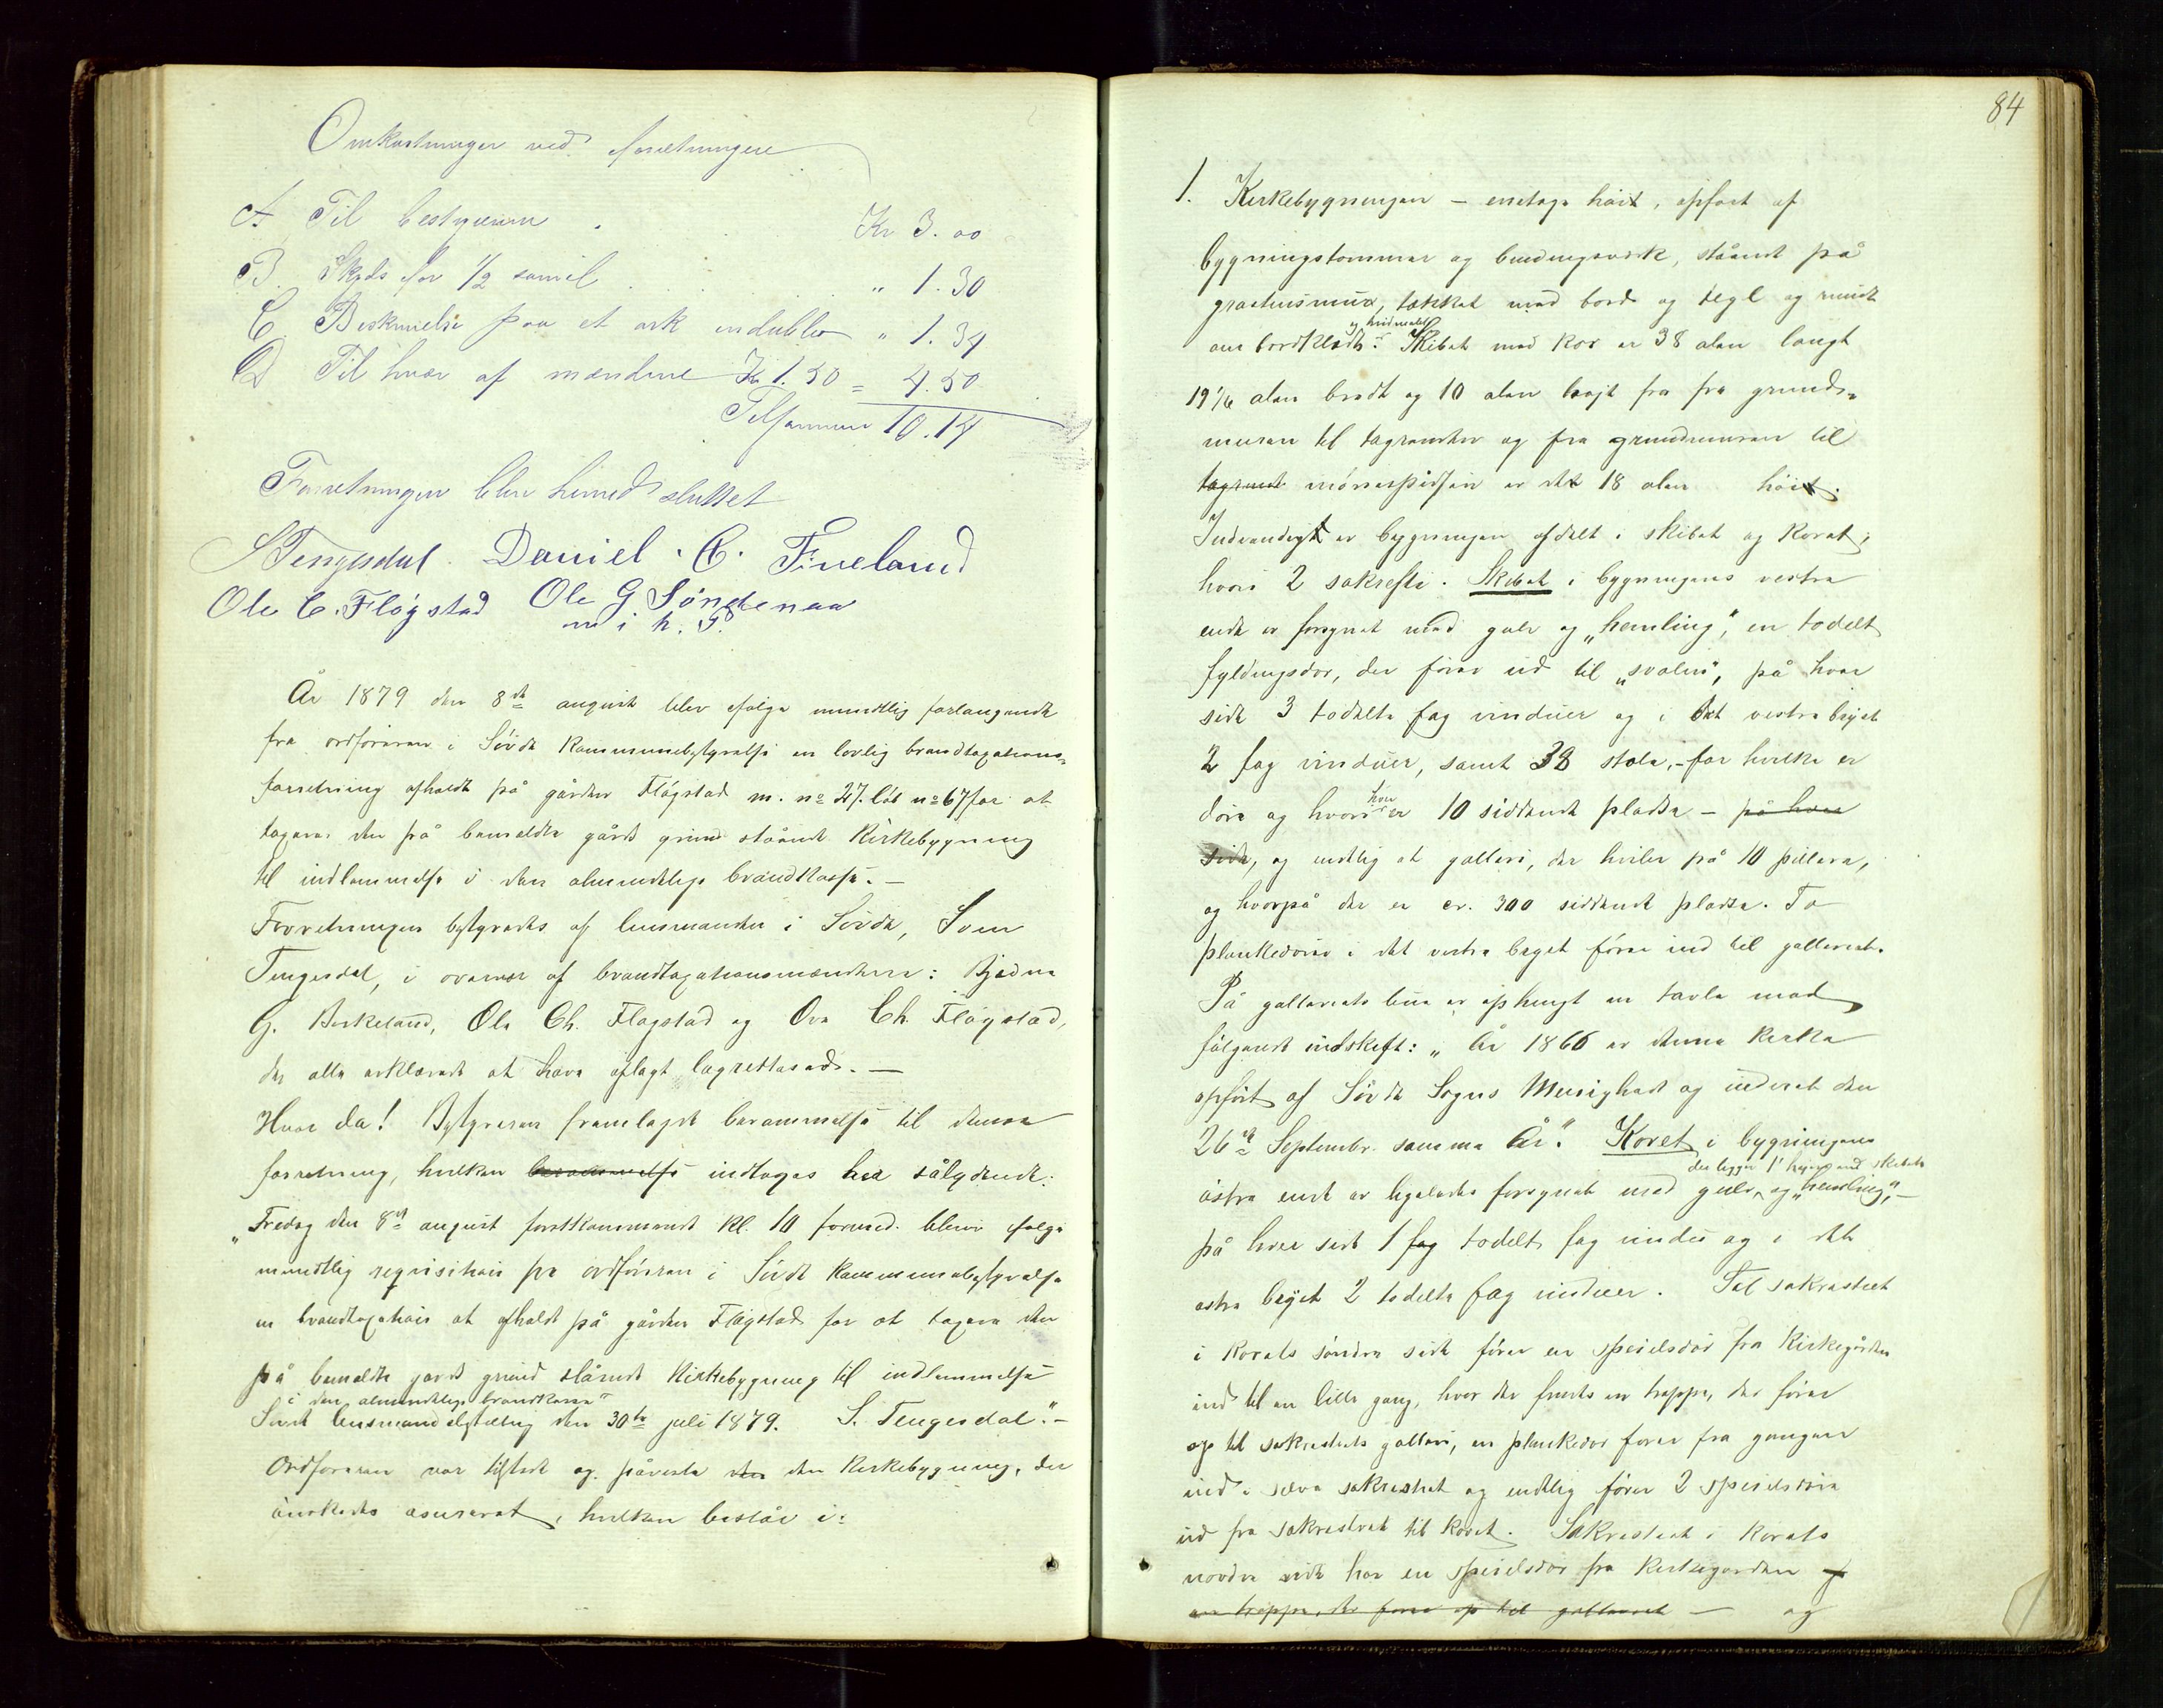 Omkostninger ved forretningen
A Til bestyreren Kr 3.00
B. Skyds for 1/2 sømil " 1.30
C. Beskrivelse paa et ark indublo " 1.34
D Til hver af mændene Kr 1.50 = 4.50
Tilsammen 10.14
Forretningen blev hermed sluttet
S Tengesdal. Daniel C. Fineland
Ole C. Fløgstad Ole G Söndenaa
m i h. P.
År 1879 den 8de august blev ifølge mundtlig forlangende
fra ordføreren i Søvde kommunebestyrelse en lovlig brandtaxations-
forretning afholdt på gården Fløgstad m. no 27. løb no 67 for at
taxere den på bemeldte gårds grund stående Kirkebygning
til indlemmelse i den almindelige brandkasse. –
Forretningen bestyredes af lensmanden i Søvde, Sven
Tengesdal, i overvær af brandtaxationsmændene: Bjedne
G. Birkeland, Ole Ch. Fløgstad og Ove Ch. Fløgstad,
der alle erklærede at have aflagt lagrettesed. –
Hvor da! Bestyreren fremlagde berammelse til denne
forretning, hvilken berammelse indtages her sålydende:
"Fredag den 8de august førstkommende kl. 10 formd. bliver ifølge
mundtlig requisition fra ordføreren i Søvde kommunebestyrelse
en brandtaxation at afholde på gården Fløgstad for at taxere den
på bemeldte gårds grund stående Kirkebygning til indlemmelse
i den almindelige brandkasse"
Søvde lensmandsbestilling den 30te juli 1879. S. Tengesdal". –
Ordføreren var tilstede og påviste den den Kirkebygning, der
ønskedes assureret, hvilken består i:
84
1. Kirkebygningen – enetages høit, opført af
bygningstømmer og bindingsverk, stående på
gråstensmur, tækket med bord og tegl og rundt
og hvidmalet
om bordklædt. Skibet med kor er 38 alen langt
19 1/6 alen bredt og 10 alen høit fra fra grund-
muren til tagrenden og fra grundmuren til
tagrend mønespidsen er det 18 alen høit.
Indvendigt er bygningen afdelt i skibet og koret,
hvori 2 sakresti. Skibet i bygningens vestre
ende er forsynet med gulv og "hemling", en todelt
fyldingsdør, der fører ud til "svalen", på hver
side 3 todelte fag vinduer og i det vestre bryst
2 fag vinduer, samt 38 stole, – for hvilke er
hver
døre og hvori er 10 siddende pladse – på hver
side, og endelig et galleri, der hviler på 10 pillere,
og hvorpå der er cr. 300 siddende pladse. To
plankedøre i det vestre bryst fører ind til galleriet.
På galleriets bue er ophengt en tavle med
følgende indskrift: "År 1866 er denne Kirke
opført af Søvde Sogns Menighed og indviet den
26de Septembr. samme År". Koret i bygningens
der ligger 1' høiere end skibets
østre ende er ligeledes forsynet med gulv, og "hemling", –
på hver side 1 fag todelt fag vindu og i det
østre bryst 2 todelte fag vinduer. Til sakrestiet
i korets søndre side fører en speildør fra kirkegården
ind til en lille gang, hvor der findes en trappe, der fører
op til sakrestiets galleri, en plankedør fører fra gangen
ind i selve sakrestiet og endelig fører 2 speilsdøre
ud fra sakrestiet til koret. Sakrestiet i korets
nordre side har en speilsdør fra kirkegården og
en trappe, der fører op til galleriet – og